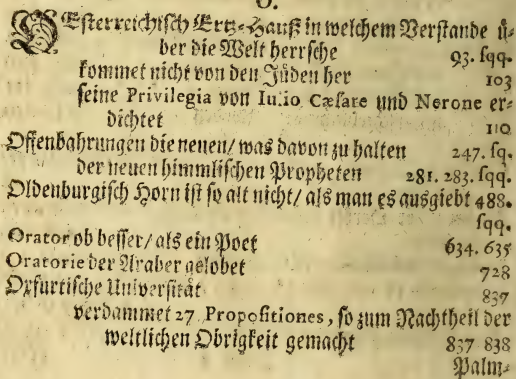 O.
OEsterreichisch Ertz-Hauß in welchem Verstande ü-
ber die Welt herrsche 93. sqq.
kommet nicht von den Jüden her 103
seine Privilegia von Iulio Cæsare und Nerone er-
dichtet 110
Offenbahrungen die neuen/ was davon zu halten 247. sq.
der neuen himmlischen Propheten 281. 283. sqq.
Oldenburgisch Horn ist so alt nicht/ als man es ausgiebt 488.
sqq.
Orator ob besser/ als ein Poet 634. 635
Oratorie der Araber gelobet 728
Oxfurtische Universität 837
verdammet 27 Propositiones, so zum Nachtheil der
weltlichen Obrigkeit gemacht 837 838
Palm-